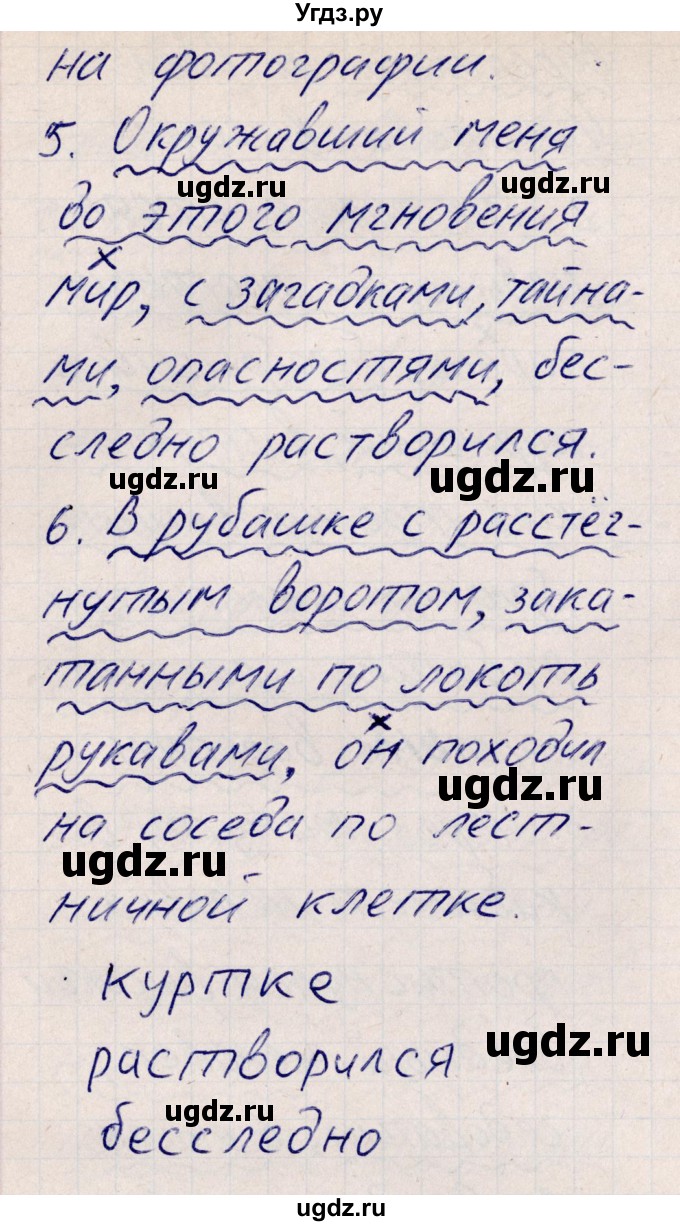 Угдз.ру
на фотографии.
5. Окружавший меня
ugdz.ru ugdz.ru
до этого мгновения
х
мир, с загадками, тайна-
ми, опасностями, бес-
следно растворился.
ugdz.ru ugdz.ru
6. В рубашке с расстёг-
нутым воротом, зака-
танными по локоть
х
рукавами, он походил
ugdz.ru
на соседа по лест-
ugdz.ru
ничной клетке.
куртке
ugdz.ru
растворился
ugdz.ru
бесследно
ugdz.ru